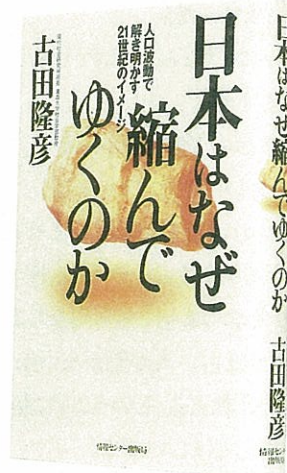 日本はなぜ
縮んで
ゆくのか
人口波動で
解き明かす
21世紀のイメージ
古田隆彦
情報センター出版局
日本はなぜ縮んでゆくのか
古田隆彦
情報センター
出版局